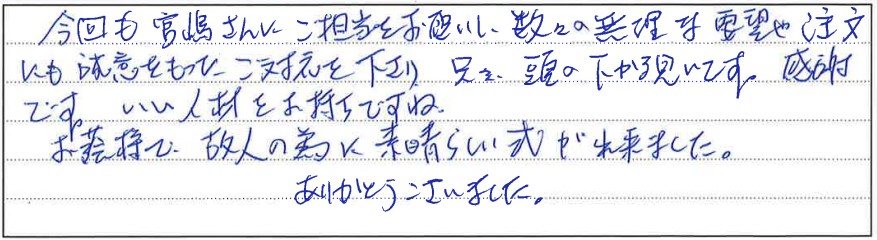 今回も宮嶋さんにご担当をお願いし、数々の無理な要望や注文
にも誠意をもったご対応を下さり、兄を、頭の下がる思いです。感謝
です。いい人材をお持ちですね。
お蔭様で、故人の為に素晴らしい式が出来ました。
ありがとうございました。